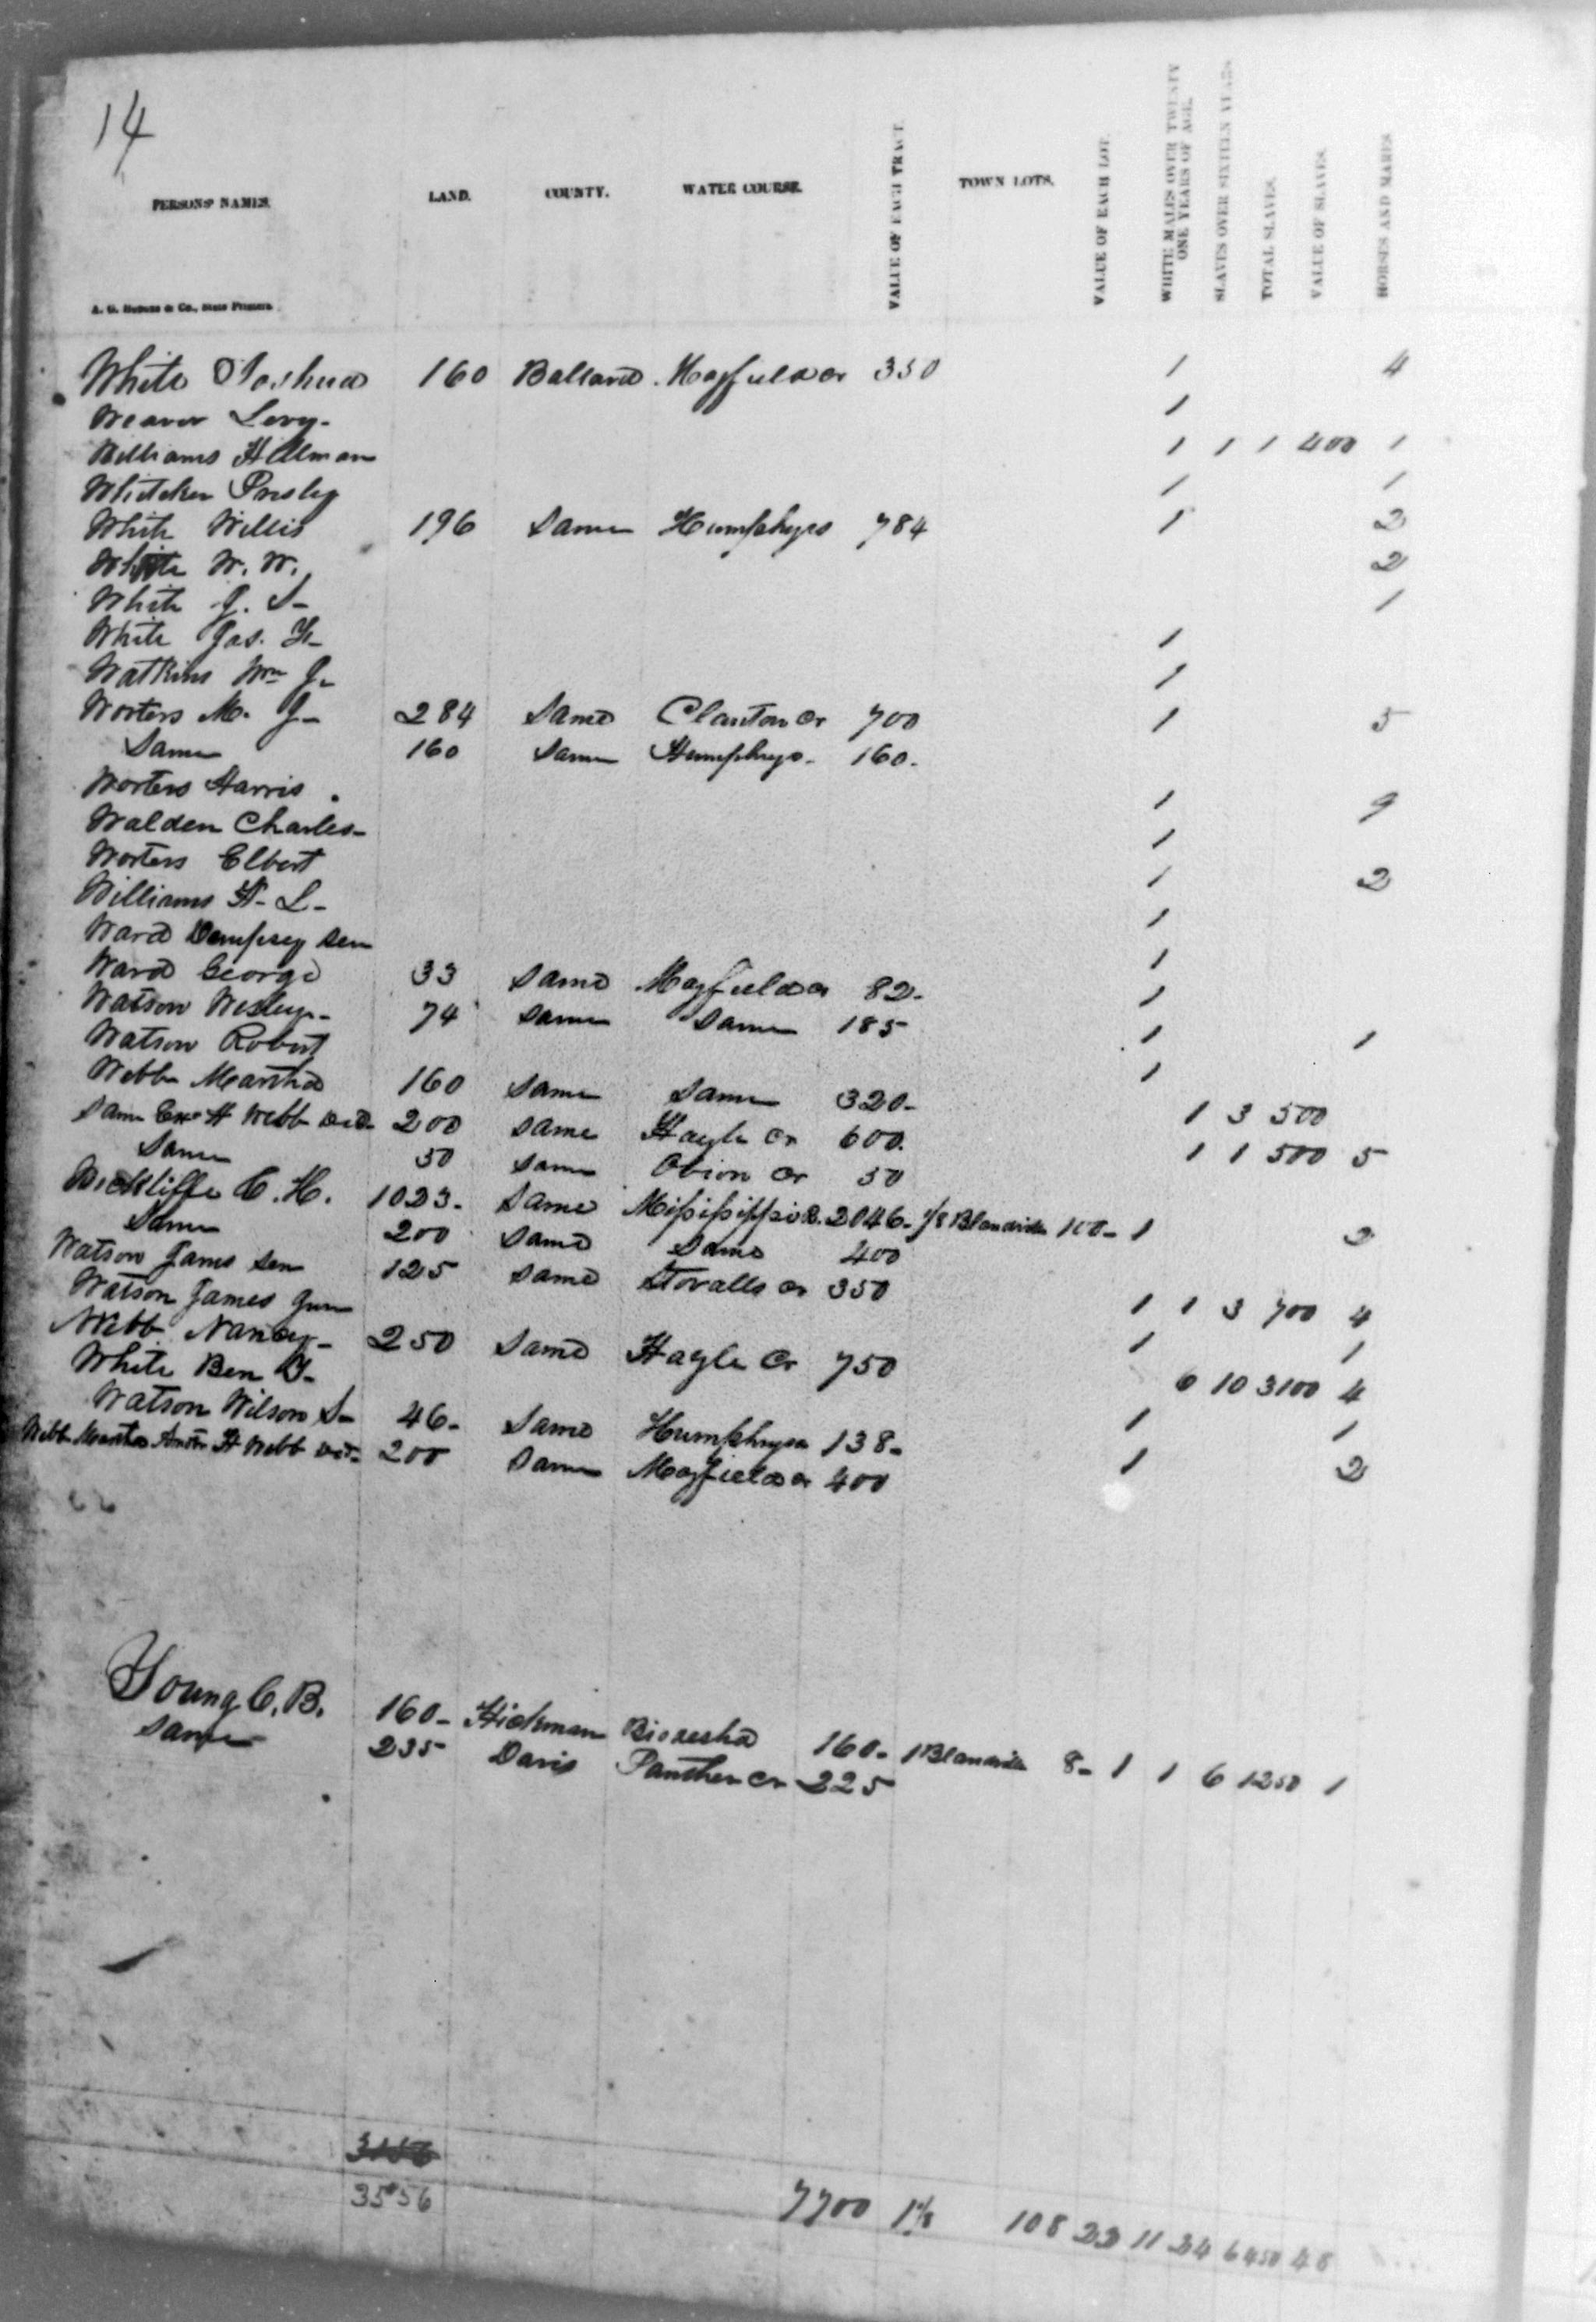 14
PERSONS' NAMES. LAND. COUNTY. WATER COURSE. VALUE OF EACH TRACT. TOWN LOTS. VALUE OF EACH LOT. WHITE MALES OVER TWENTY ONE YEARS OF AGE. SLAVES OVER SIXTEEN YEARS TOTAL SLAVES. VALUE OF SLAVES. HORSES AND MARES
A. G. Hodges & Co., State Printers.
White Joshua 160 Ballard Mayfield cr 330 1 4
Weaver Levy- 1
Williams Hillman 1 1 1 400 1
Whitcher Presley 1 1
White Willis 196 Same Humphrys 784 1 2
White W. W. 2
White J. S- 1
White Jas. H- 1
Watkins Wm J- 1
Worters M. J- 284 Same Clanton cr 700 1 5
Same 160 Same Humphrys- 160-
Worters Harris 1 9
Walden Charles- 1
Worters Elbert 1 2
Williams H- L- 1
Ward Dempsey Sen 1
Ward George 33 Same Mayfield cr 82- 1
Watson Wesley- 74 Same Same 185 1 1
Watson Robert 1
Webb Martha 160 Same Same 320- 1 3 500
Same Exr H Webb Decd 200 Same Hayle cr 600. 1 1 500 5
Same 50 Same Obion cr 50
Wickliffe C. H. 1023- Same Missisippi R. 2046- 1/8 Blandville 100- 1 2
Same 200 Same Same 400
Watson James Sen 125 Same Stovalls cr 350 1 1 3 700 4
Watson James Jun 1 1
Webb Nancy- 250 Same Hayle Cr 750 6 10 3100 4
White Ben F- 1 1
Watson Wilson S- 46- Same Humphrys 138- 1 2
Webb Martha Admr H Webb Decd- 200 Same Mayfield cr 400
Young C. B. 160- Hickman 160- 1 Blandville 8- 1 1 6 1250 1
Same 235 Davis Panther cr 225
3156
3556 7700 1 1/8 108 23 11 24 6450 48